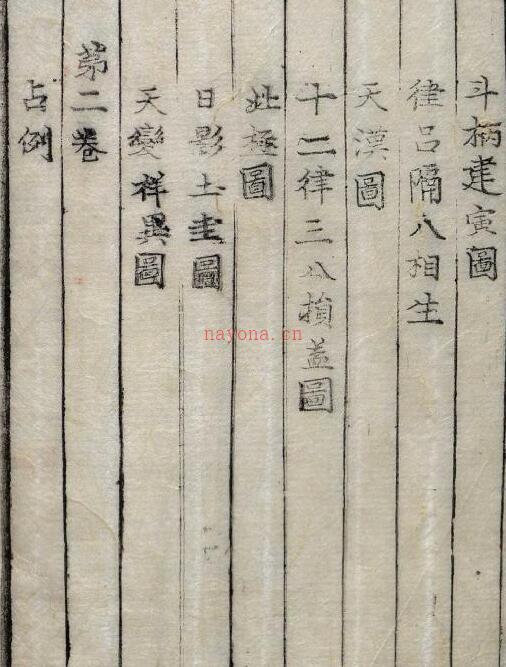 斗柄建寅圖
律呂隔八相生
天漢圖
十二律三八損益圖
北極圖
日影土圭圖
天變祥異圖
第二卷
占例
nayona.cn